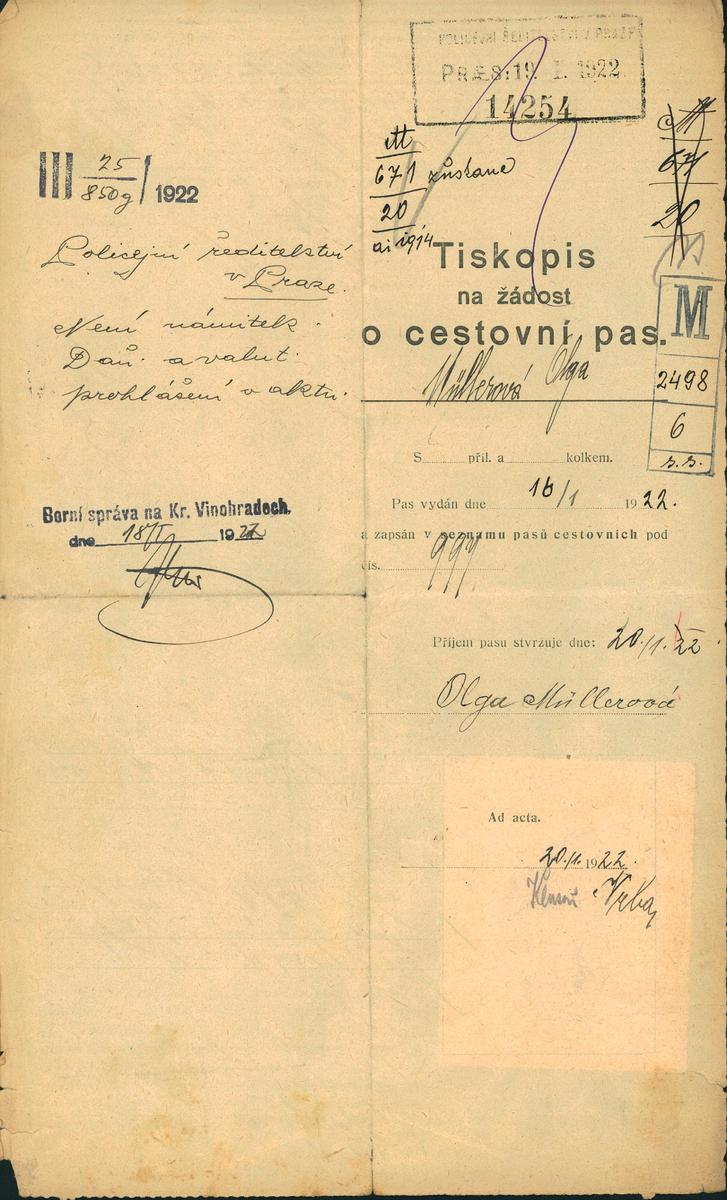 III 25/850g/1922
Policejní ředitelství
v Praze.
Není námitek.
Daň. a valut.
prohlášení v aktu.
Berní správa na Kr. Vinohradech.
dne 18/I 1922
POLICEJNÍ ŘEDITELSTVÍ V PRAZE
PRÆS: 19. I. 1922
14254
M
671 zůstane
20
ai 1914
M
671
20
Tiskopis
na žádost
o cestovní pas.
M
2498
6
s.s.
Müllerová Olga
S příl. a kolkem.
Pas vydán dne 16/1 1922.
a zapsán v seznamu pasů cestovních pod
čís. 997
Příjem pasu stvrzuje dne: 20./1. 22
Olga Müllerová
Ad acta.
20./1. 1922.